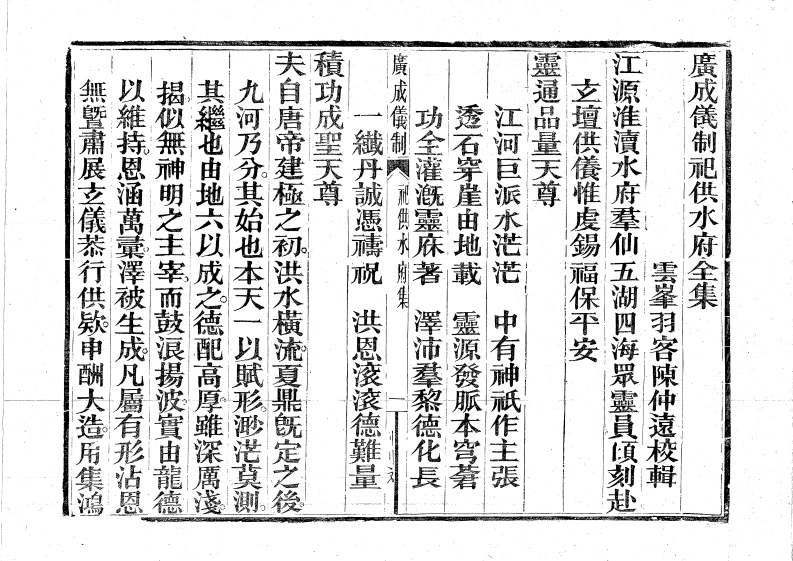 廣成儀制祀供水府全集
雲峯羽客陳仲遠校輯
江源淮瀆水府羣仙五湖四海眾靈員頃刻赴
玄壇供儀惟虔錫福保平安
靈通品量天尊
江河巨派水茫茫　中有神祇作主張
透石穿崖由地載　靈源發脈本穹蒼
功全灌溉靈庥著　澤沛羣黎德化長
廣成儀制　祀供水府集　一
一纖丹誠憑禱祝　洪恩滚滚德難量
積功成聖天尊
夫自唐帝建極之初。洪水橫流。夏鼎既定之後。
九河乃分。其始也本天一以賦形。渺茫莫測。
其繼也由地六以成之。德配高厚。雖深厲淺
揭。似無神明之主宰。而鼓浪揚波。實由龍德
以維持。恩涵萬彙。澤被生成。凡屬有形沾恩
無暨。肅展玄儀。恭行供欵。申酬大造。用集鴻